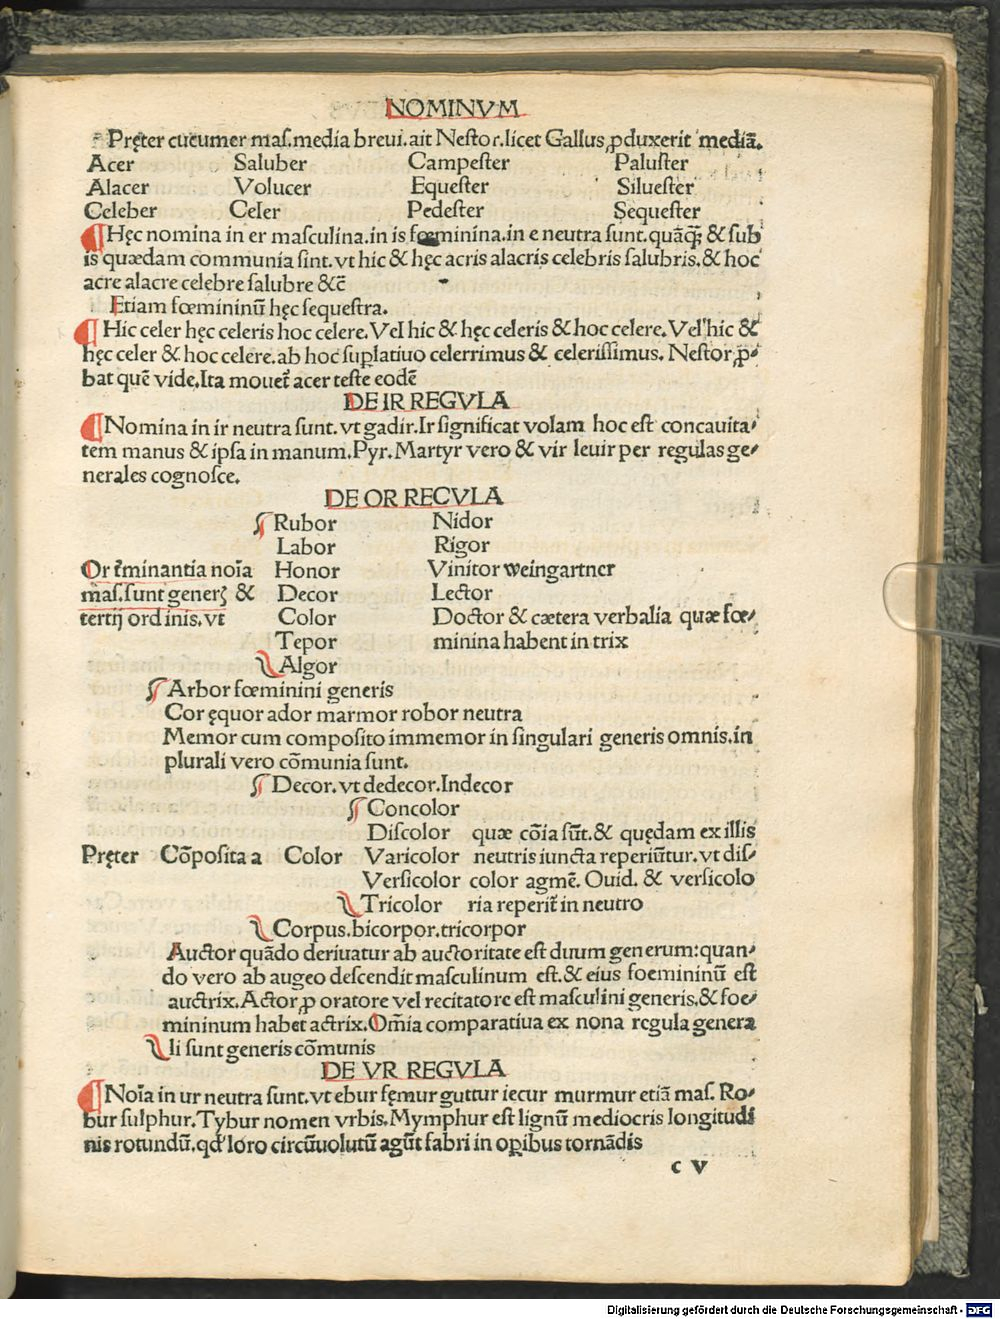 NOMINVM
Pręter cucumer maſ.media breui.ait Neſtor.licet Gallus ꝓduxerit mediā.
Acer Saluber Campeſter Paluſter
Alacer Volucer Equeſter Silueſter
Celeber Celer Pedeſter Sequeſter
¶ Hęc nomina in er maſculina.in is fœminina.in e neutra ſunt.quāqꝫ & ſub
is quædam communia ſint.vt hic & hęc acris alacris celebris ſalubris.& hoc
acre alacre celebre ſalubre &c̄
Etiam fœmininū hęc ſequeſtra.
¶ Hic celer hęc celeris hoc celere.Vel hic & hęc celeris & hoc celere.Vel hic &
hęc celer & hoc celere.ab hoc ſuꝑlatiuo celerrimus & celeriſſimus. Neſtor ꝓ⸗
bat quē vide.Ita mouet̄ acer teſte eodē
DE IR REGVLA
¶ Nomina in ir neutra ſunt.vt gadir.Ir ſignificat volam hoc eſt concauita⸗
tem manus & ipſa in manum.Pyr.Martyr vero & vir leuir per regulas ge⸗
nerales cognoſce.
DE OR RECVLA
Rubor Nidor
Labor Rigor
Or t̄minantia noīa Honor Vinitor weingartner
maſ.ſunt generꝭ & Decor Lector
tertij ordinis.vt Color Doctor & cætera verbalia quæ fœ⸗
Tepor minina habent in trix
Algor
Arbor fœminini generis
Cor ęquor ador marmor robor neutra
Memor cum compoſito immemor in ſingulari generis omnis.in
plurali vero cōmunia ſunt.
Decor.vt dedecor.Indecor
Concolor
Diſcolor quæ cōia ſūt.& quędam ex illis
Pręter Cōpoſita a Color Varicolor neutris iuncta reperiūtur.vt diſ⸗
Verſicolor color agmē.Ouid. & verſicolo
Tricolor ria reperit̄ in neutro
Corpus.bicorpor.tricorpor
Auctor quādo deriuatur ab auctoritate eſt duum generum:quan⸗
do vero ab augeo deſcendit maſculinum eſt.& eius foemininū eſt
auctrix.Actor ꝓ oratore vel recitatore eſt maſculini generis.& foe⸗
mininum habet actrix.Om̄ia comparatiua ex nona regula genera
li ſunt generis cōmunis
DE VR REGVLA
¶ Noīa in ur neutra ſunt.vt ebur fęmur guttur iecur murmur etiā maſ. Ro⸗
bur ſulphur.Tybur nomen vrbis.Mymphur eſt lignū mediocris longitudi
nis rotundū.qd' loro circūuolutū agūt fabri in oꝑibus tornādis
c v
Digitalisierung gefördert durch die Deutsche Forschungsgemeinschaft - DFG